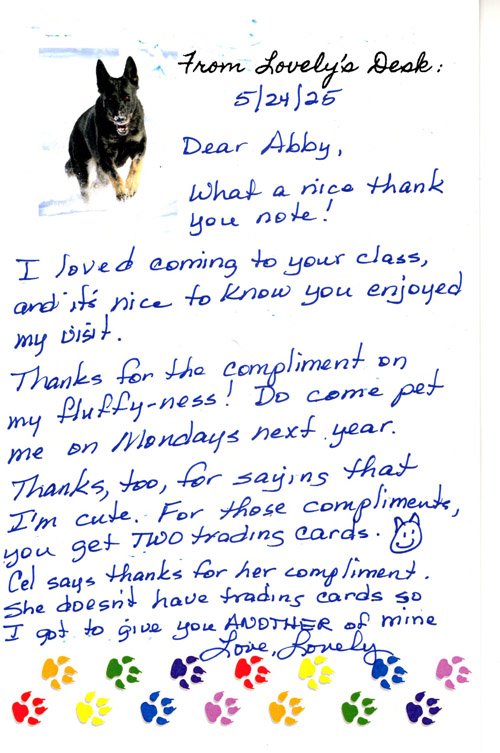 From Lovely's Desk:
5/24/25
Dear Abby,
What a nice thank
you note!
I loved coming to your class,
and it's nice to know you enjoyed
my visit.
Thanks for the compliment on
my fluffy-ness! Do come pet
me on Mondays next year.
Thanks, too, for saying that
I'm cute. For those compliments,
you get TWO trading cards.
Cel says thanks for her compliment.
She doesn't have trading cards so
I got to give you ANOTHER of mine
Love, Lovely